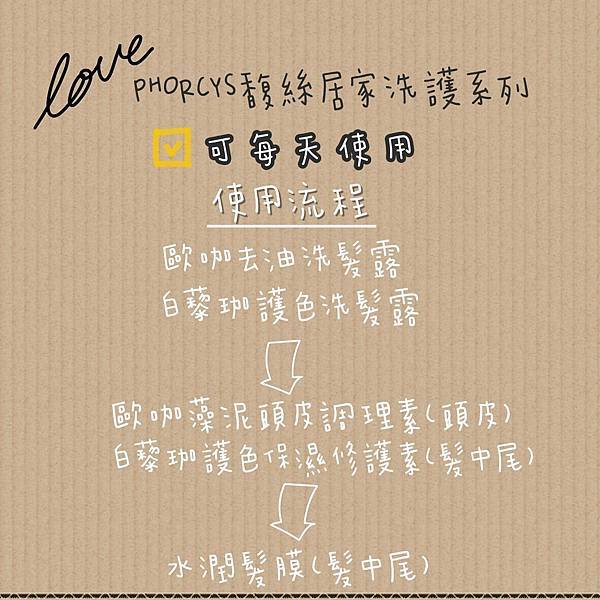 love
PHORCYS馥絲居家洗護系列
可每天使用
使用流程
歐咖去油洗髮露
白藜珈護色洗髮露
歐咖藻泥頭皮調理素(頭皮)
白藜珈護色保濕修護素(髮中尾)
水潤髮膜(髮中尾)